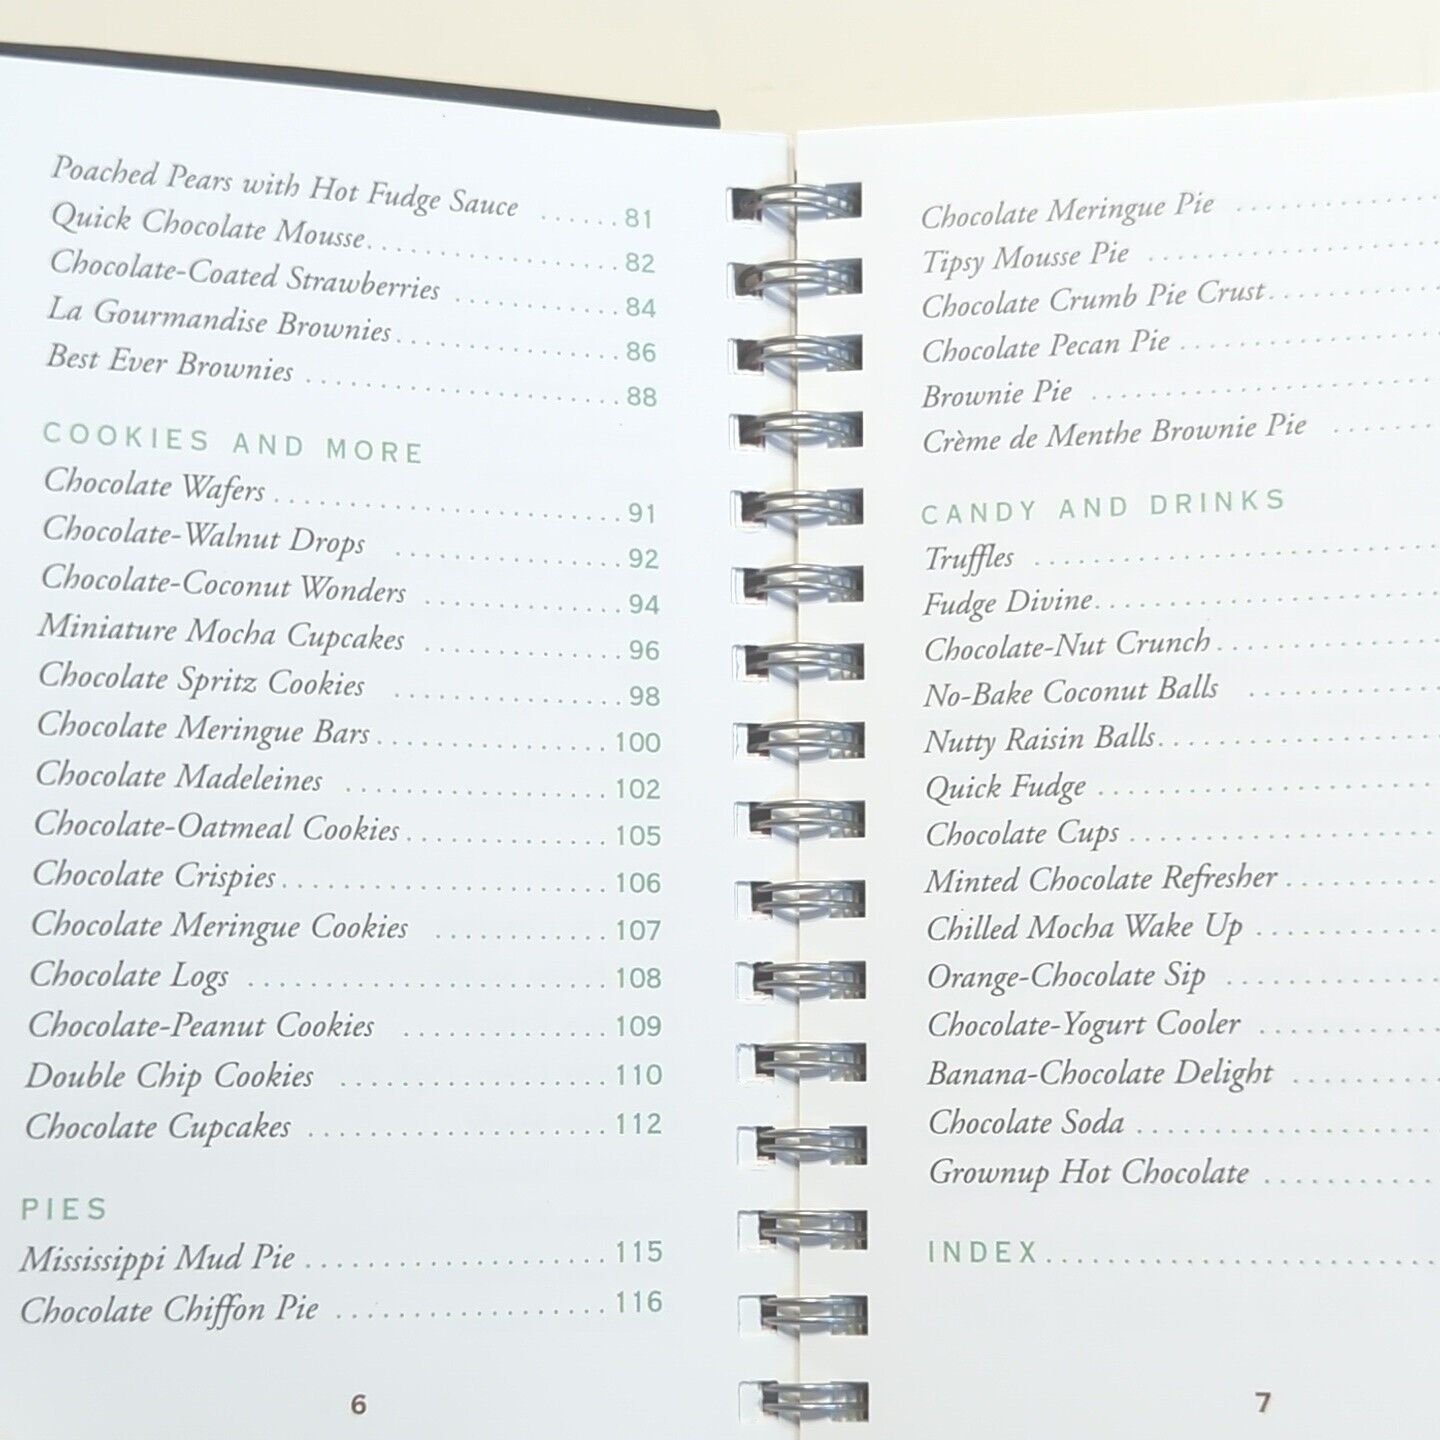 Poached Pears with Hot Fudge Sauce ......81
Quick Chocolate Mousse....................82
Chocolate-Coated Strawberries .............84
La Gourmandise Brownies..................86
Best Ever Brownies .........................88
COOKIES AND MORE
Chocolate Wafers............................91
Chocolate-Walnut Drops ..................92
Chocolate-Coconut Wonders ................94
Miniature Mocha Cupcakes ................96
Chocolate Spritz Cookies ..................98
Chocolate Meringue Bars.................100
Chocolate Madeleines ...................102
Chocolate-Oatmeal Cookies...............105
Chocolate Crispies.......................106
Chocolate Meringue Cookies .............107
Chocolate Logs ..........................108
Chocolate-Peanut Cookies ...............109
Double Chip Cookies ....................110
Chocolate Cupcakes .....................112
PIES
Mississippi Mud Pie ......................115
Chocolate Chiffon Pie ...................116
6
Chocolate Meringue Pie .............
Tipsy Mousse Pie ...................
Chocolate Crumb Pie Crust...........
Chocolate Pecan Pie .................
Brownie Pie .......................
Crème de Menthe Brownie Pie .......
CANDY AND DRINKS
Truffles ...........................
Fudge Divine.......................
Chocolate-Nut Crunch...............
No-Bake Coconut Balls .............
Nutty Raisin Balls..................
Quick Fudge ......................
Chocolate Cups ....................
Minted Chocolate Refresher ..........
Chilled Mocha Wake Up ............
Orange-Chocolate Sip ..............
Chocolate-Yogurt Cooler ............
Banana-Chocolate Delight ..........
Chocolate Soda ....................
Grownup Hot Chocolate ............
INDEX.........................
7